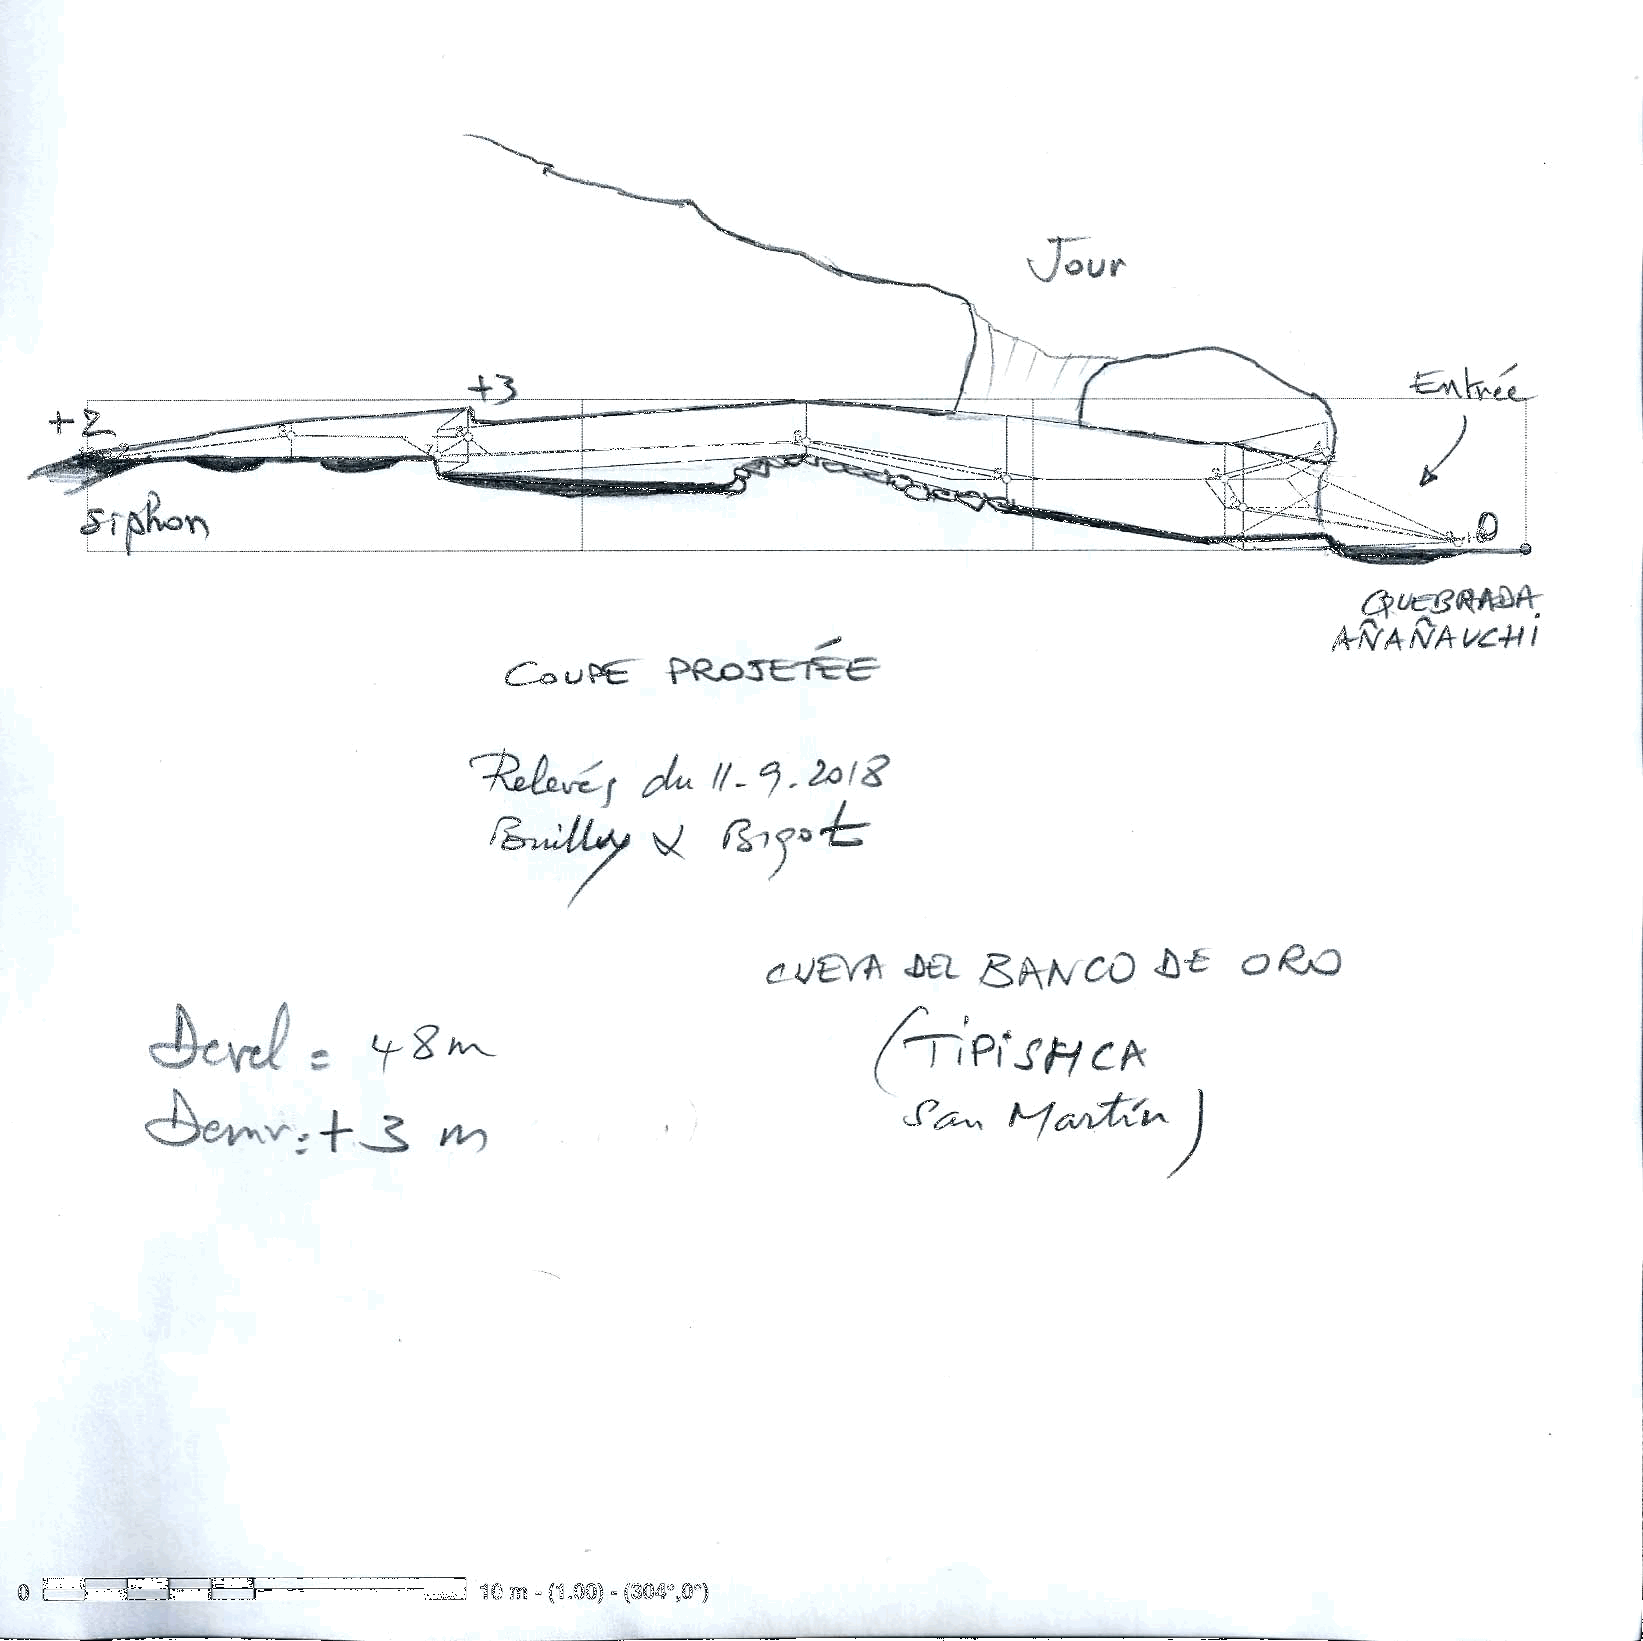 Jour
Entrée
+3
+2
siphon
0
QUEBRADA
AÑAÑAUCHI
COUPE PROJETÉE
Relevés du 11-9-2018
& Bigot
CUEVA DEL BANCO DE ORO
(TIPISHCA
San Martín)
Devel = 48m
Deniv = +3 m
0 10 m - (1.00) - (304°,0°)